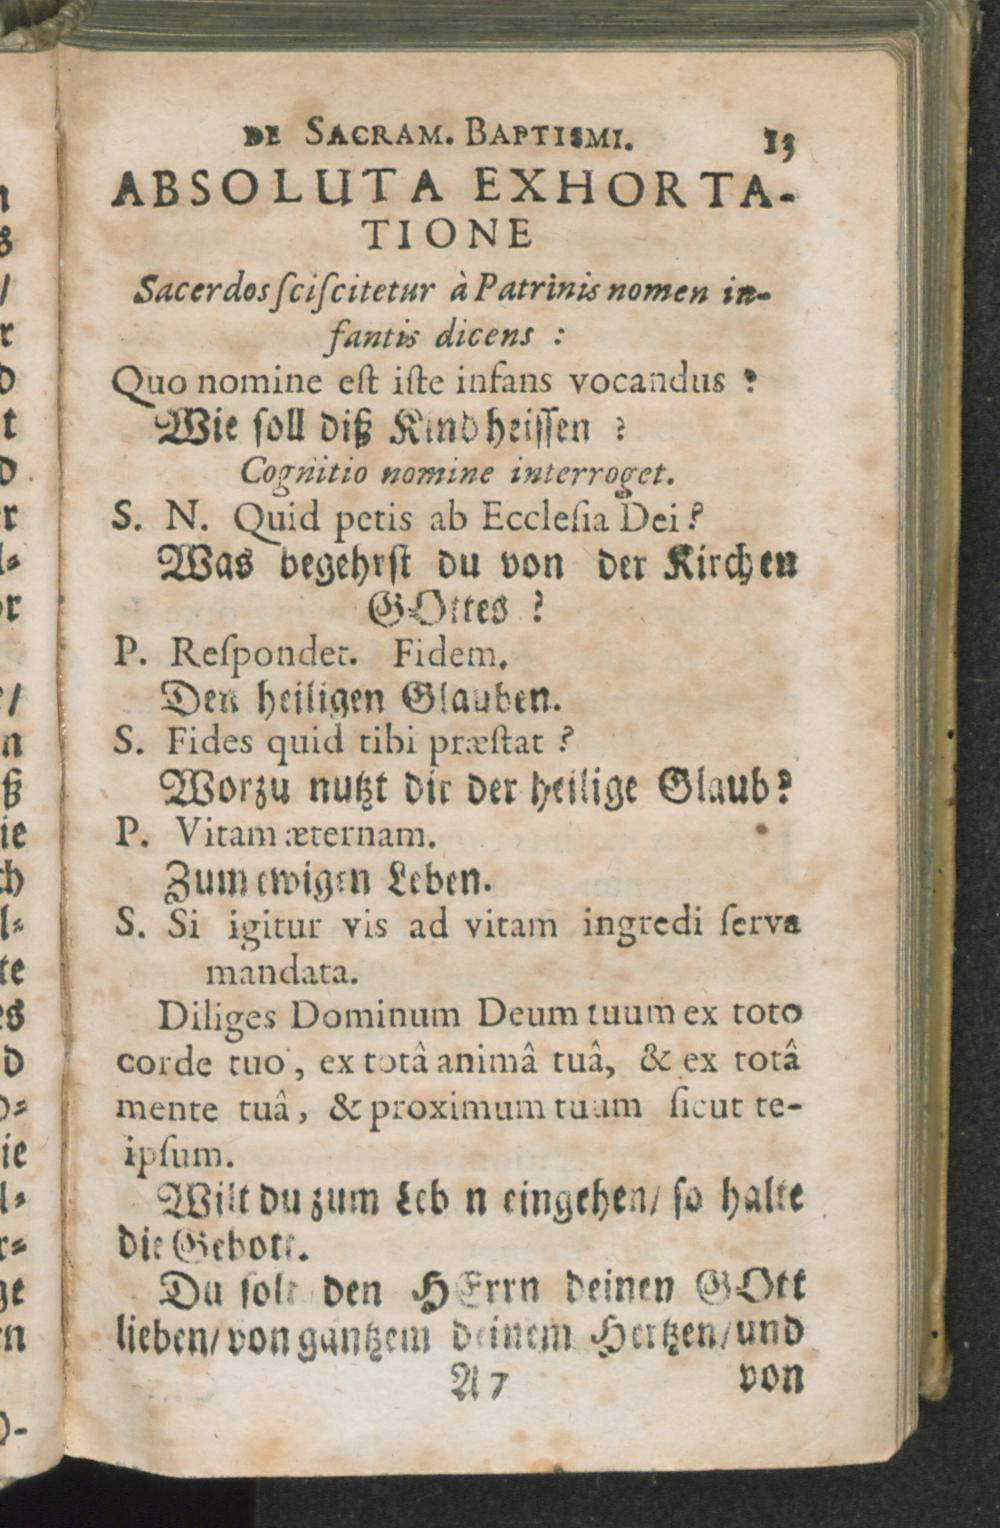 DE SACRAM. BAPTISMI. 13
ABSOLUTA EXHORTA-
TIONE
Sacerdos ſciſcitetur à Patrinis nomen in-
fantis dicens :
Quo nomine eſt iſte infans vocandus ?
Wie ſoll diß Kind heiſſen ?
Cognitio nomine interroget.
S. N. Quid petis ab Eccleſia Dei ?
Was begehrſt du von der Kirchen
GOttes ?
P. Reſpondet. Fidem.
Den heiligen Glauben.
S. Fides quid tibi præſtat ?
Worzu nutzt dir der heilige Glaub?
P. Vitam æternam.
Zum ewigen Leben.
S. Si igitur vis ad vitam ingredi ſerva
mandata.
Diliges Dominum Deum tuum ex toto
corde tuo, ex totâ animâ tuâ, & ex totâ
mente tuâ, & proximum tuum ſicut te-
ipſum.
Wilt du zum Leb n eingehen/ ſo halte
die Gebott.
Du ſolt den HErrn deinen GOtt
lieben/ von gantzem deinem Hertzen/ und
A 7 von